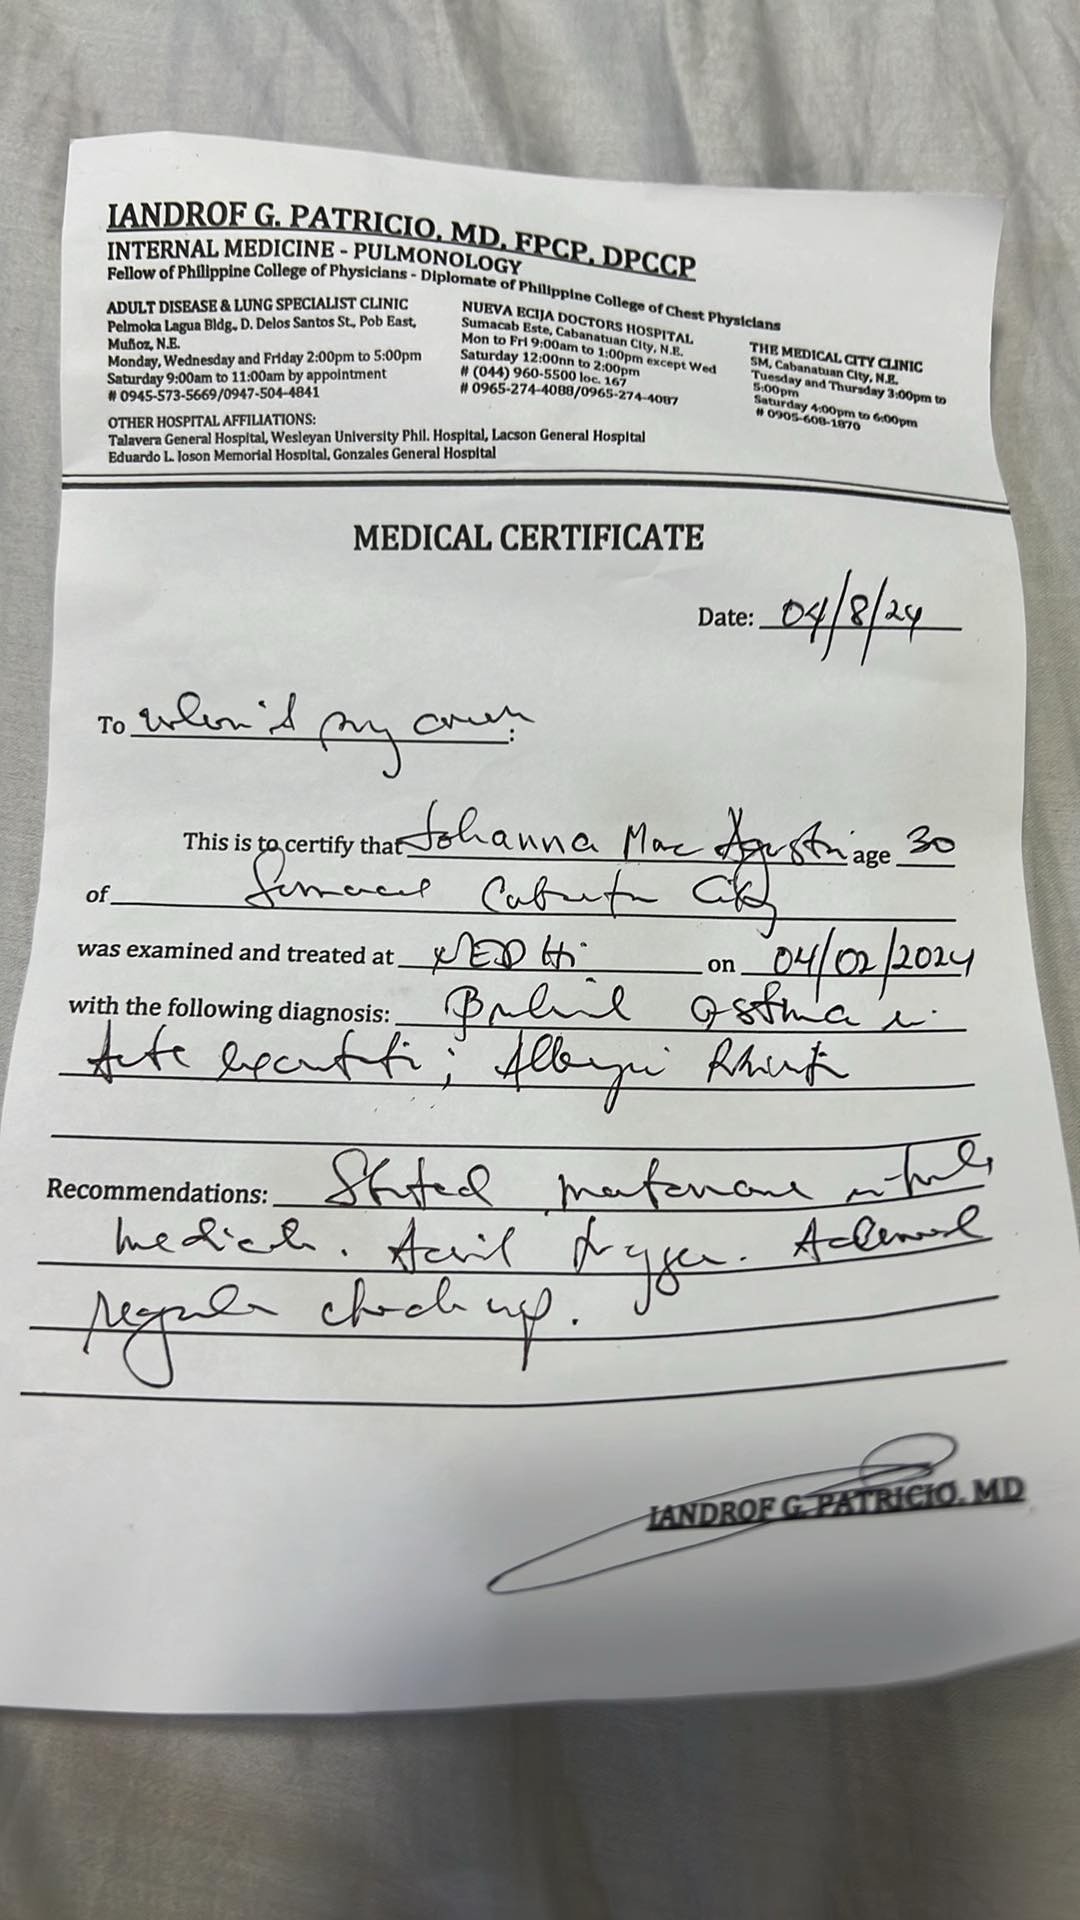 IANDROF G. PATRICIO, MD, FPCP, DPCCP
INTERNAL MEDICINE - PULMONOLOGY
Fellow of Philippine College of Physicians - Diplomate of Philippine College of Chest Physicians
ADULT DISEASE & LUNG SPECIALIST CLINIC
Pelmoka Lagua Bldg., D. Delos Santos St., Pob East,
Muñoz, N.E.
Monday, Wednesday and Friday 2:00pm to 5:00pm
Saturday 9:00am to 11:00am by appointment
# 0945-573-5669/0947-504-4841
NUEVA ECIJA DOCTORS HOSPITAL
Sumacab Este, Cabanatuan City, N.E.
Mon to Fri 9:00am to 1:00pm except Wed
Saturday 12:00nn to 2:00pm
# (044) 960-5500 loc. 167
# 0965-274-4088/0965-274-4087
THE MEDICAL CITY CLINIC
SM, Cabanatuan City, N.E.
Tuesday and Thursday 3:00pm to
5:00pm
Saturday 4:00pm to 6:00pm
# 0905-608-1870
OTHER HOSPITAL AFFILIATIONS:
Talavera General Hospital, Wesleyan University Phil. Hospital, Lacson General Hospital
Eduardo L. Joson Memorial Hospital, Gonzales General Hospital
MEDICAL CERTIFICATE
Date: 04/8/24
To whom it may concern:
This is to certify that Johanna Mae Agustin age 30
of City
was examined and treated at NEDHI on 04/02/2024
with the following diagnosis: Bronchial asthma in
Acute exacerbation; Allergic Rhinitis
Recommendations: Started maintenance
regular check up.
IANDROF G. PATRICIO, MD